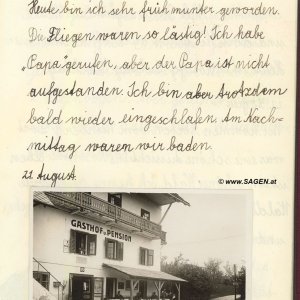 Heute bin ich sehr früh munter geworden.
Die Fliegen waren so lästig! Ich habe
„Papa" gerufen, aber der Papa ist nicht
aufgestanden. Ich bin aber trotzdem
bald wieder eingeschlafen. Am Nach-
mittag waren wir baden.
21 August.
© www.SAGEN.at
GASTHOF u PENSION